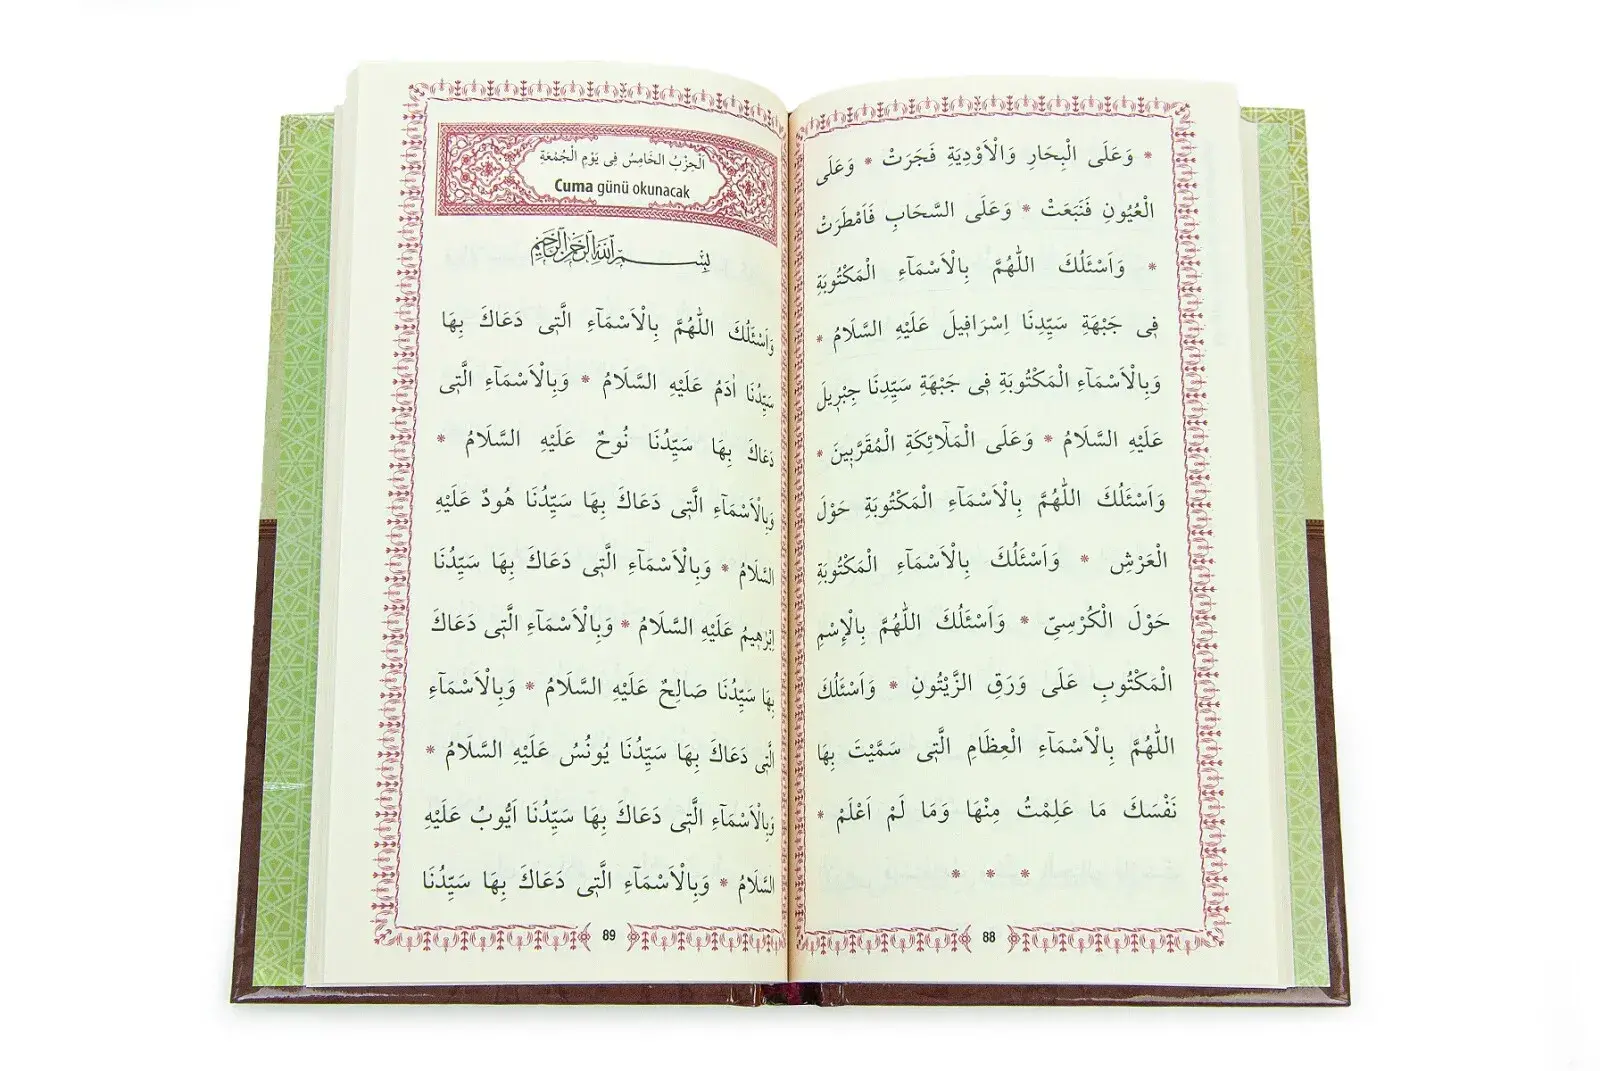 * وَعَلَى الْبِحَارِ وَالْاَوْدِيَةِ فَجَرَتْ * وَعَلَى
الْعُيُونِ فَنَبَعَتْ * وَعَلَى السَّحَابِ فَاَمْطَرَتْ
* وَاَسْئَلُكَ اللّٰهُمَّ بِالْاَسْمَآءِ الْمَكْتُوبَةِ
فٖى جَبْهَةِ سَيِّدِنَا اِسْرَافٖيلَ عَلَيْهِ السَّلَامُ *
وَبِالْاَسْمَآءِ الْمَكْتُوبَةِ فٖى جَبْهَةِ سَيِّدِنَا جِبْرٖيلَ
عَلَيْهِ السَّلَامُ * وَعَلَى الْمَلٰٓائِكَةِ الْمُقَرَّبٖينَ *
وَاَسْئَلُكَ اللّٰهُمَّ بِالْاَسْمَآءِ الْمَكْتُوبَةِ حَوْلَ
الْعَرْشِ * وَاَسْئَلُكَ بِالْاَسْمَآءِ الْمَكْتُوبَةِ
حَوْلَ الْكُرْسِيِّ * وَاَسْئَلُكَ اللّٰهُمَّ بِالْاِسْمِ
الْمَكْتُوبِ عَلَى وَرَقِ الزَّيْتُونِ * وَاَسْئَلُكَ
اللّٰهُمَّ بِالْاَسْمَآءِ الْعِظَامِ الَّتٖى سَمَّيْتَ بِهَا
نَفْسَكَ مَا عَلِمْتُ مِنْهَا وَمَا لَمْ اَعْلَمْ *
* * *
88
اَلْحِزْبُ الْخَامِسُ فٖى يَوْمِ الْجُمُعَةِ
Cuma günü okunacak
بِسْمِ اللّٰهِ الرَّحْمٰنِ الرَّحٖيمِ
وَاَسْئَلُكَ اللّٰهُمَّ بِالْاَسْمَآءِ الَّتٖى دَعَاكَ بِهَا
سَيِّدُنَا اٰدَمُ عَلَيْهِ السَّلَامُ * وَبِالْاَسْمَآءِ الَّتٖى
دَعَاكَ بِهَا سَيِّدُنَا نُوحٌ عَلَيْهِ السَّلَامُ *
وَبِالْاَسْمَآءِ الَّتٖى دَعَاكَ بِهَا سَيِّدُنَا هُودٌ عَلَيْهِ
السَّلَامُ * وَبِالْاَسْمَآءِ الَّتٖى دَعَاكَ بِهَا سَيِّدُنَا
اِبْرٰهٖيمُ عَلَيْهِ السَّلَامُ * وَبِالْاَسْمَآءِ الَّتٖى دَعَاكَ
بِهَا سَيِّدُنَا صَالِحٌ عَلَيْهِ السَّلَامُ * وَبِالْاَسْمَآءِ
الَّتٖى دَعَاكَ بِهَا سَيِّدُنَا يُونُسُ عَلَيْهِ السَّلَامُ *
وَبِالْاَسْمَآءِ الَّتٖى دَعَاكَ بِهَا سَيِّدُنَا اَيُّوبُ عَلَيْهِ
السَّلَامُ * وَبِالْاَسْمَآءِ الَّتٖى دَعَاكَ بِهَا سَيِّدُنَا
89